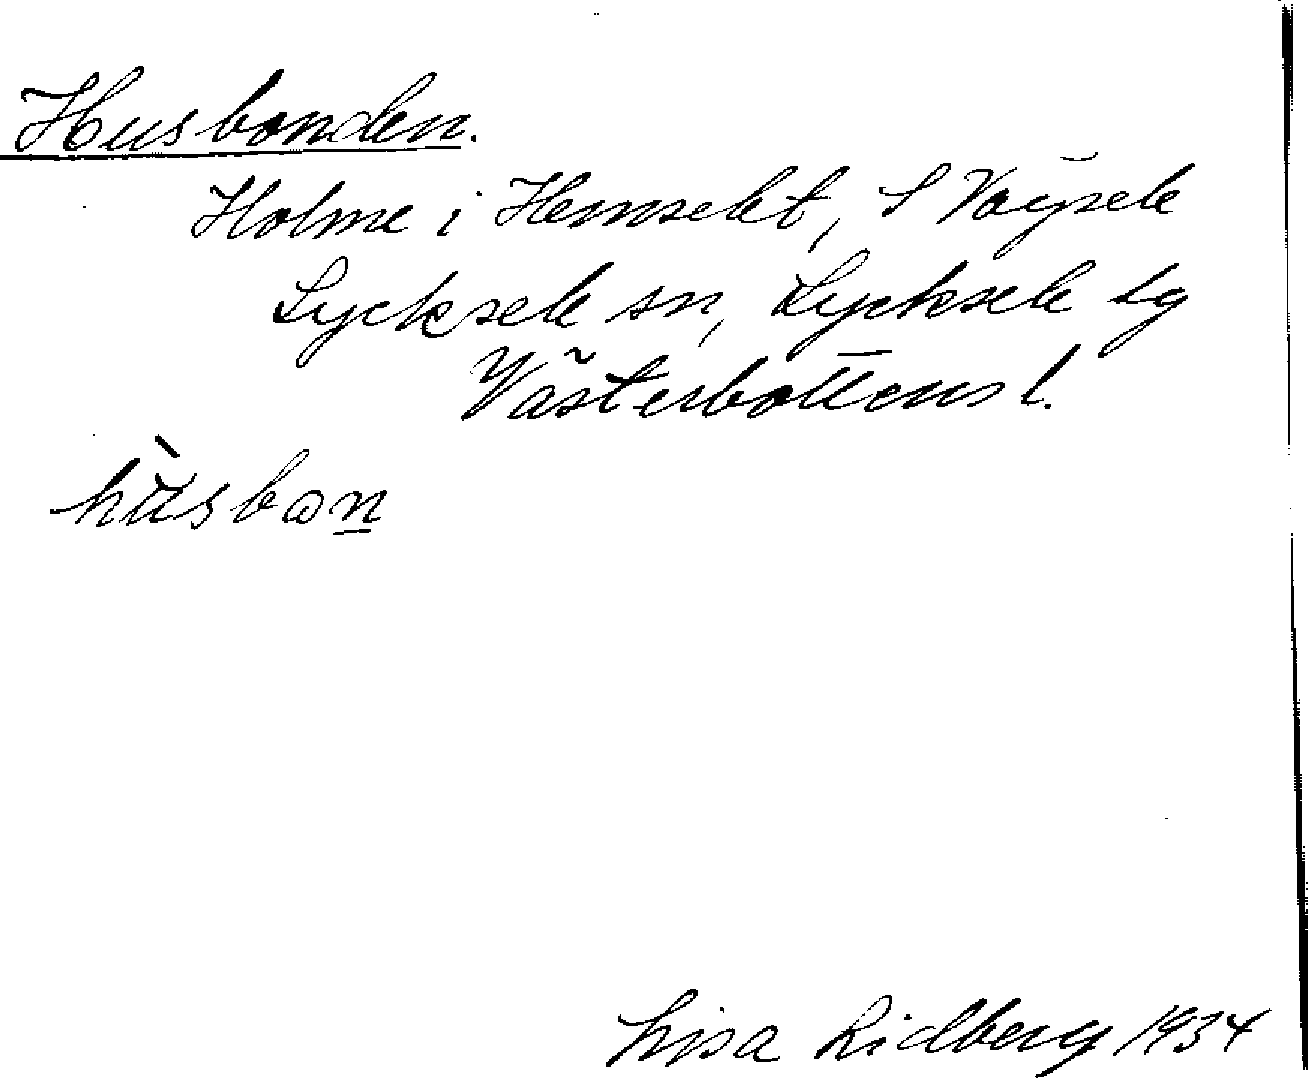 Husbonden.
Holme i Hemselet, S Vägsele
Lycksele sn, Lycksele lg
Västerbottens l.
hùsbon
Lisa Lidberg 1934